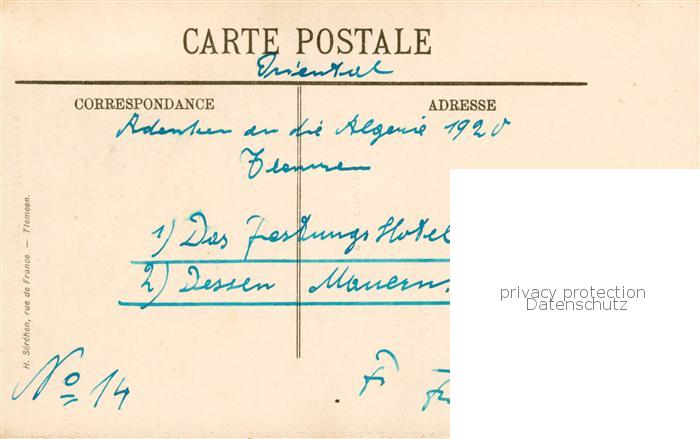 CARTE POSTALE
Oriental
CORRESPONDANCE
ADRESSE
Adenken an die Algerie 1920
Tlemcen
1) Das Festungs Hotel
2) Dessen Mauern.
privacy protection
Datenschutz
No 14
H. Séréhen, rue de France. — Tlemcen.